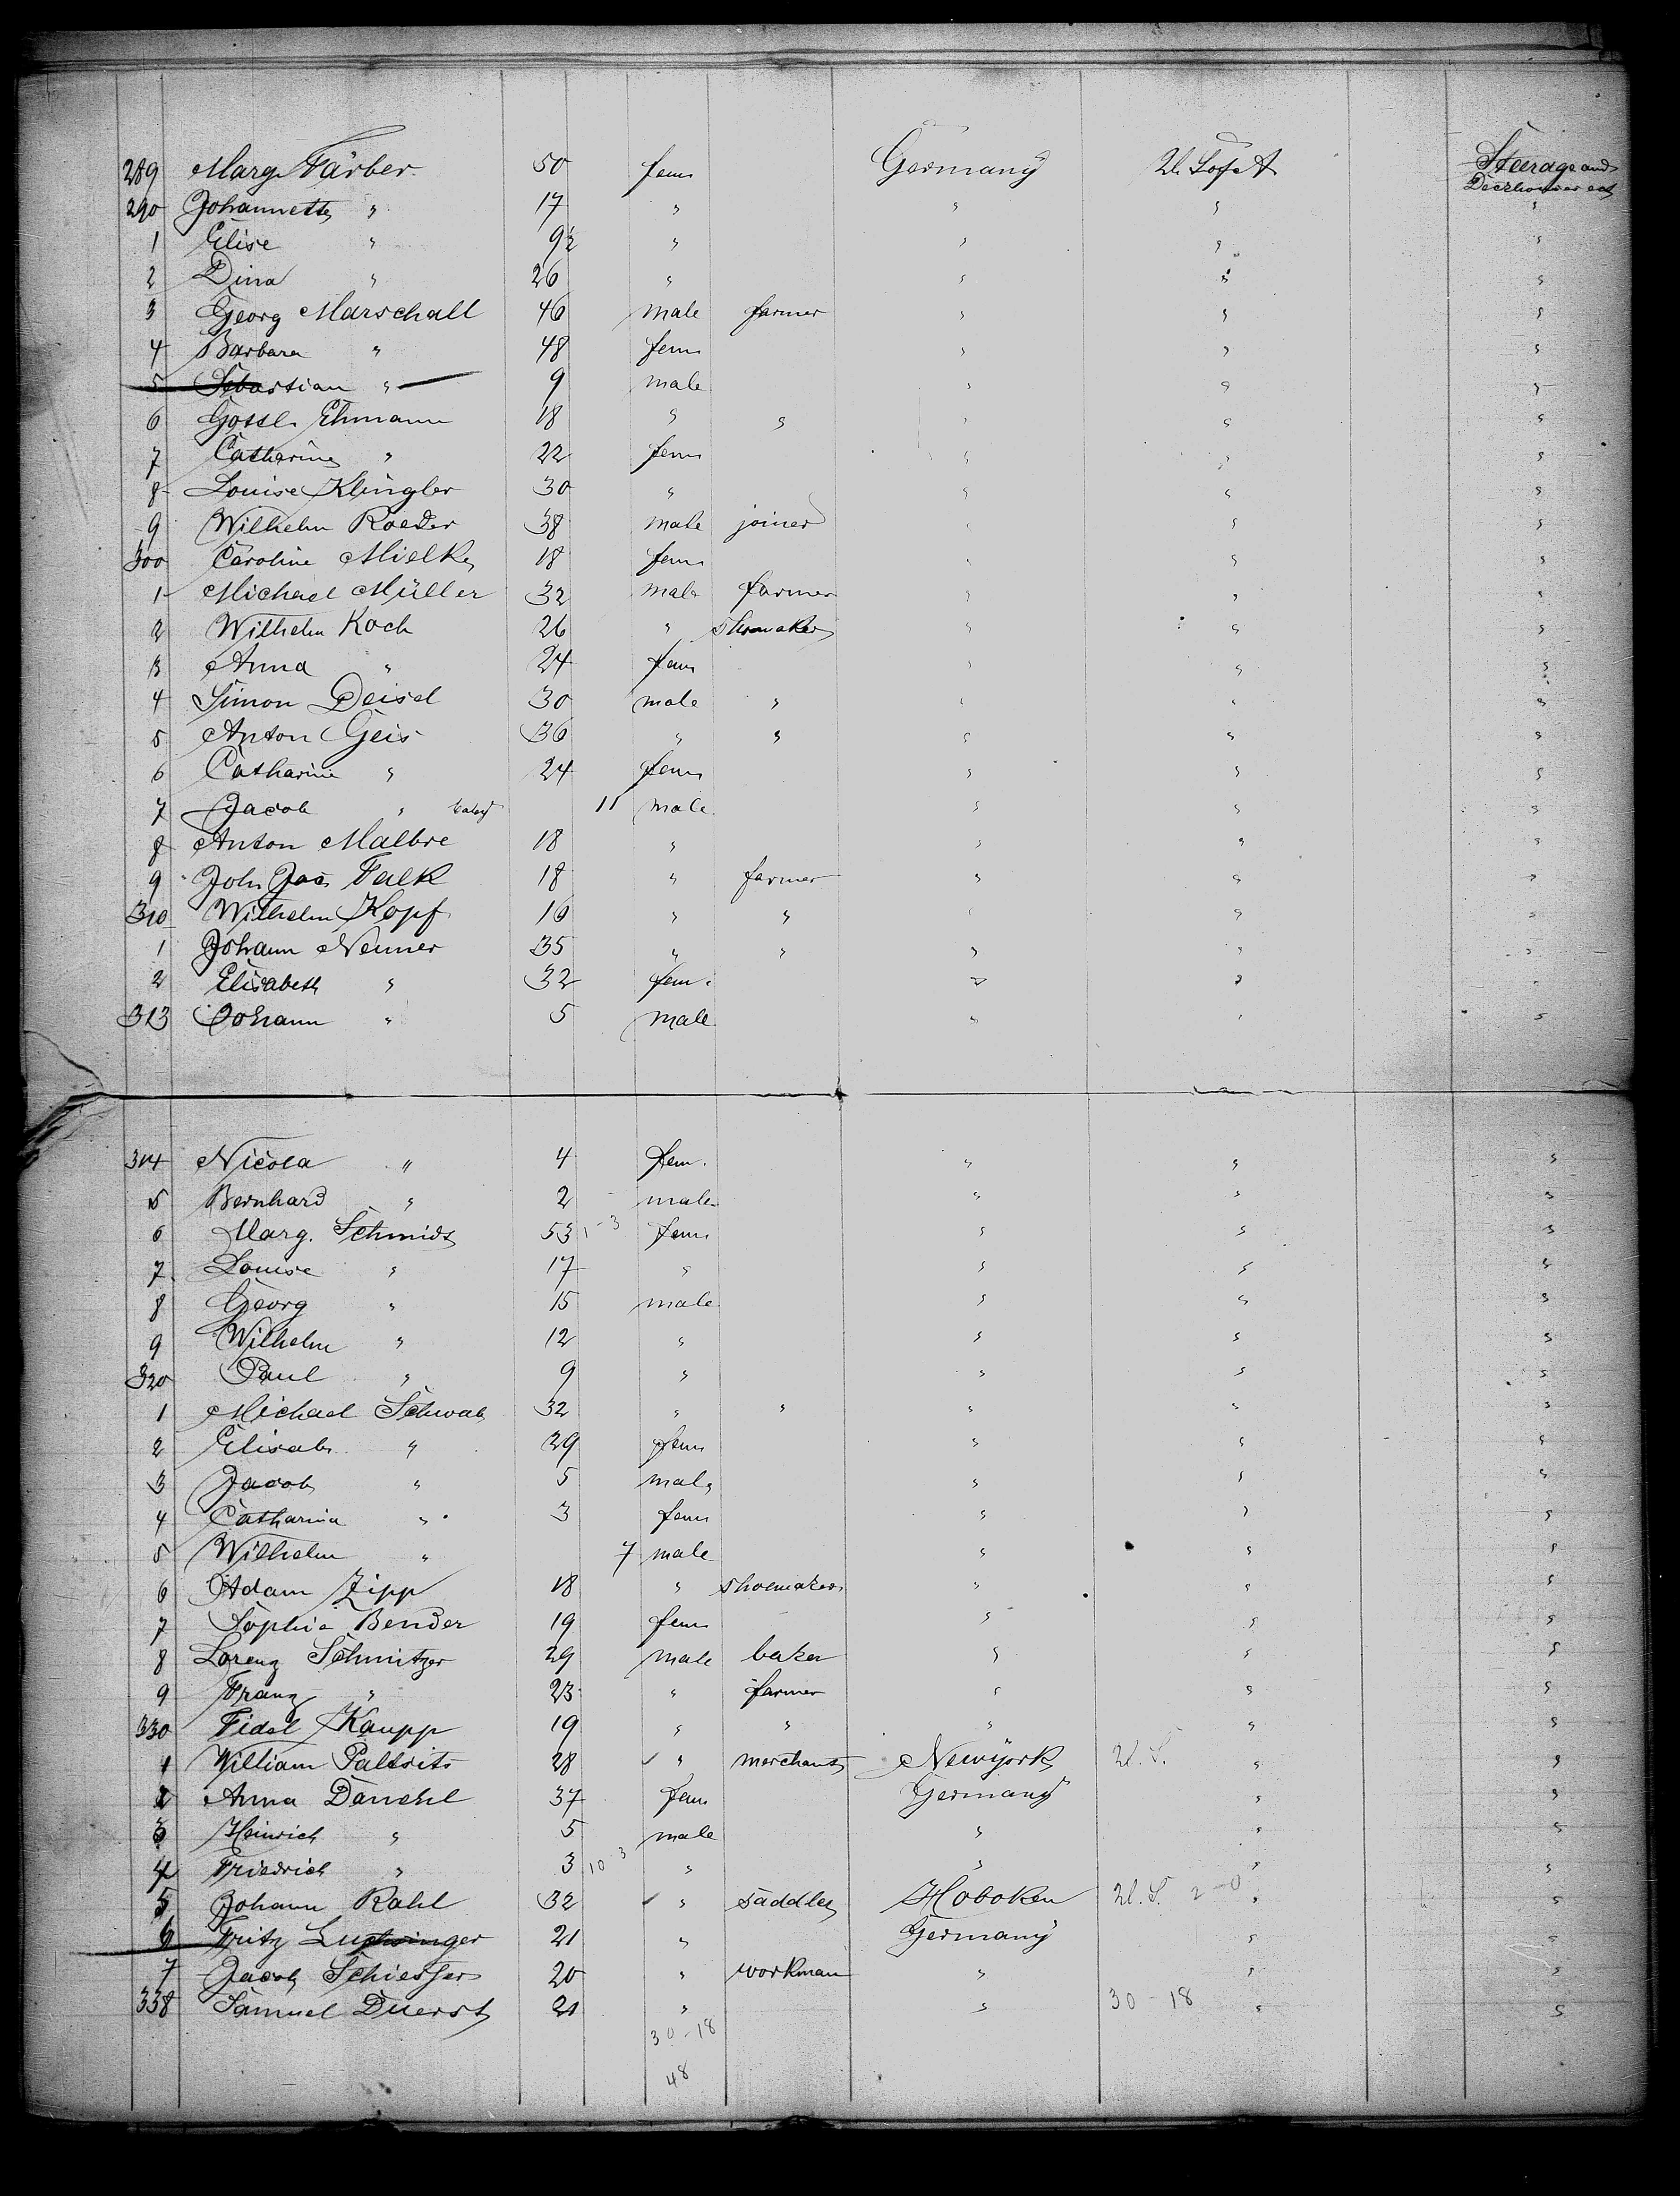 289 Marg. Färber 50 fem Germany U. S. of A Steerage and
Deckhouse etc
290 Johannette " 17 " " " "
1 Elise " 9½ " " " "
2 Dina " 26 " " " "
3 Georg Marschall 46 male farmer " " "
4 Barbara " 48 fem " " "
5 Sebastian " 9 male " " "
6 Gottl. Ehmann 18 " " " " "
7 Catharine " 22 fem " " "
8 Louise Klingler 30 " " " "
9 Wilhelm Roeder 38 male joiner " " "
300 Caroline Mielke 18 fem " " "
1 Michael Müller 32 male farmer " " "
2 Wilhelm Koch 26 " shomaker " " "
3 Anna " 24 fem " " "
4 Simon Deisel 30 male " " " "
5 Anton Geis 36 " " " " "
6 Catharine " 24 fem " " "
7 Jacob " baby 11 male " " "
8 Anton Malbre 18 " " " "
9 John Jac. Falk 18 " farmer " " "
310 Wilhelm Kopf 16 " " " " "
1 Johann Nenner 35 " " " " "
2 Elisabeth " 32 fem. " " "
313 Johann " 5 male " " "
314 Nicola " 4 fem. " " "
5 Bernhard " 2 male " " "
6 Marg. Schmidt 53 1-3 fem " " "
7 Louise " 17 " " " "
8 Georg " 15 male " " "
9 Wilhelm " 12 " " " "
320 Paul " 9 " " " "
1 Michael Schwab 32 " " " " "
2 Elisab. " 29 fem " " "
3 Jacob " 5 male " " "
4 Catharina " 3 fem " " "
5 Wilhelm " 7 male " " "
6 Adam Zipp 18 " shoemaker " " "
7 Sophie Bender 19 fem " " "
8 Lorenz Schmitzer 29 male baker " " "
9 Franz " 23 " farmer " " "
330 Fidel Kaupp 19 " " " " "
1 William Paltsits 28 ✓ " merchant Newyork U. S. " "
2 Anna Danehl 37 fem Germany " "
3 Heinrich " 5 male " " "
4 Friedrich " 3 10-3 " " " "
5 Johann Rahl 32 ✓ " saddler Hoboken U. S. 2-0 " "
6 Fritz 21 " Germany " "
7 Jacob Schiesser 20 " workman " " "
338 Samuel Duerst 21 " " 30-18 " "
30-18
48